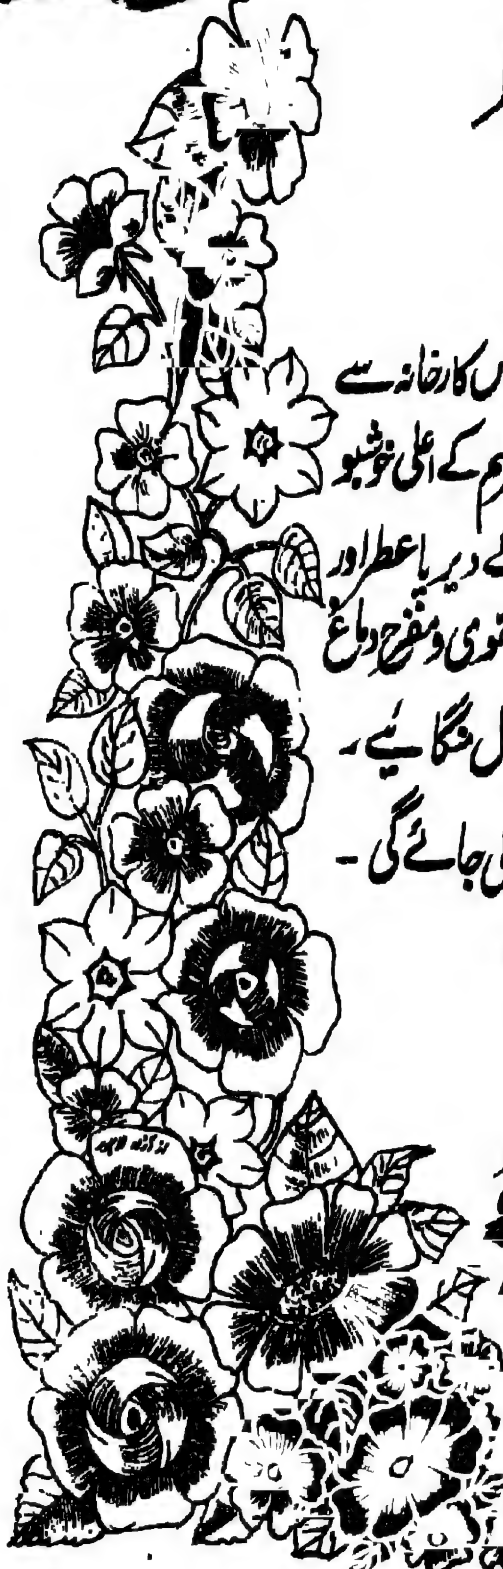 کارخانہ سے
کے اعلیٰ خوشبو
دیرپا عطر اور
مقوی و مفرح دماغ
منگائیے ۔
جائے گی ۔